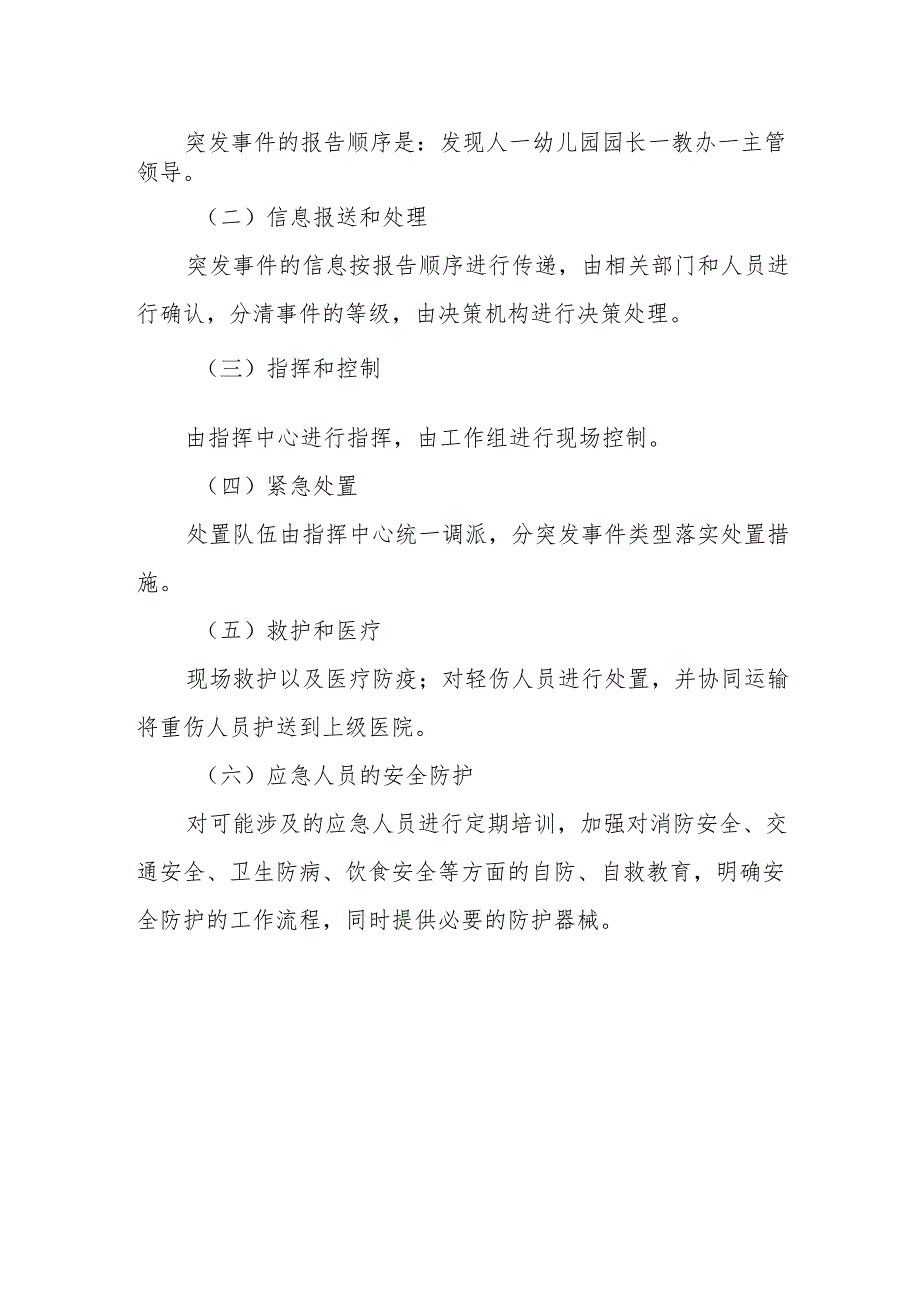 突发事件的报告顺序是：发现人一幼儿园园长一教办一主管
领导。
（二）信息报送和处理
突发事件的信息按报告顺序进行传递，由相关部门和人员进
行确认，分清事件的等级，由决策机构进行决策处理。
（三）指挥和控制
由指挥中心进行指挥，由工作组进行现场控制。
（四）紧急处置
处置队伍由指挥中心统一调派，分突发事件类型落实处置措
施。
（五）救护和医疗
现场救护以及医疗防疫；对轻伤人员进行处置，并协同运输
将重伤人员护送到上级医院。
（六）应急人员的安全防护
对可能涉及的应急人员进行定期培训，加强对消防安全、交
通安全、卫生防病、饮食安全等方面的自防、自救教育，明确安
全防护的工作流程，同时提供必要的防护器械。